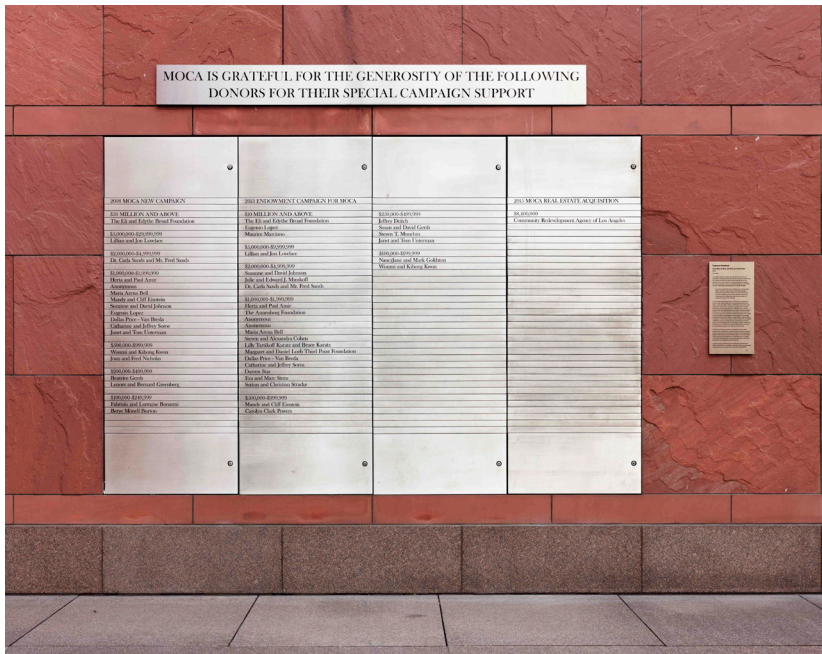 MOCA IS GRATEFUL FOR THE GENEROSITY OF THE FOLLOWING
DONORS FOR THEIR SPECIAL CAMPAIGN SUPPORT
2008 MOCA NEW CAMPAIGN
$30 MILLION AND ABOVE
The Eli and Edythe Broad Foundation
$5,000,000-$29,999,999
Lillian and Jon Lovelace
$2,000,000-$4,999,999
Dr. Carla Sands and Mr. Fred Sands
$1,000,000-$1,999,999
Herta and Paul Amir
Anonymous
Maria Arena Bell
Mandy and Cliff Einstein
Suzanne and David Johnson
Eugenio Lopez
Dallas Price-Van Breda
Catharine and Jeffrey Soros
Janet and Tom Unterman
$500,000-$999,999
Wonmi and Kihong Kwon
Joan and Fred Nicholas
$250,000-$499,999
Beatrice Gersh
Lenore and Bernard Greenberg
$100,000-$249,999
Fabrizio and Lorraine Bonanni
Betye Monell Burton
2013 ENDOWMENT CAMPAIGN FOR MOCA
$10 MILLION AND ABOVE
The Eli and Edythe Broad Foundation
Eugenio Lopez
Maurice Marciano
$5,000,000-$9,999,999
Lillian and Jon Lovelace
$2,000,000-$4,999,999
Suzanne and David Johnson
Julie and Edward J. Minskoff
Dr. Carla Sands and Mr. Fred Sands
$1,000,000-$1,999,999
Herta and Paul Amir
The Annenberg Foundation
Anonymous
Anonymous
Maria Arena Bell
Steven and Alexandra Cohen
Lilly Tartikoff Karatz and Bruce Karatz
Margaret and Daniel Loeb Third Point Foundation
Dallas Price-Van Breda
Catharine and Jeffrey Soros
Darren Star
Eva and Marc Stern
Sutton and Christian Stracke
$500,000-$999,999
Mandy and Cliff Einstein
Carolyn Clark Powers
$250,000-$499,999
Jeffrey Deitch
Susan and David Gersh
Steven T. Mnuchin
Janet and Tom Unterman
$100,000-$249,999
NancyJane and Mark Goldston
Wonmi and Kihong Kwon
2015 MOCA REAL ESTATE ACQUISITION
$8,400,000
Community Redevelopment Agency of Los Angeles